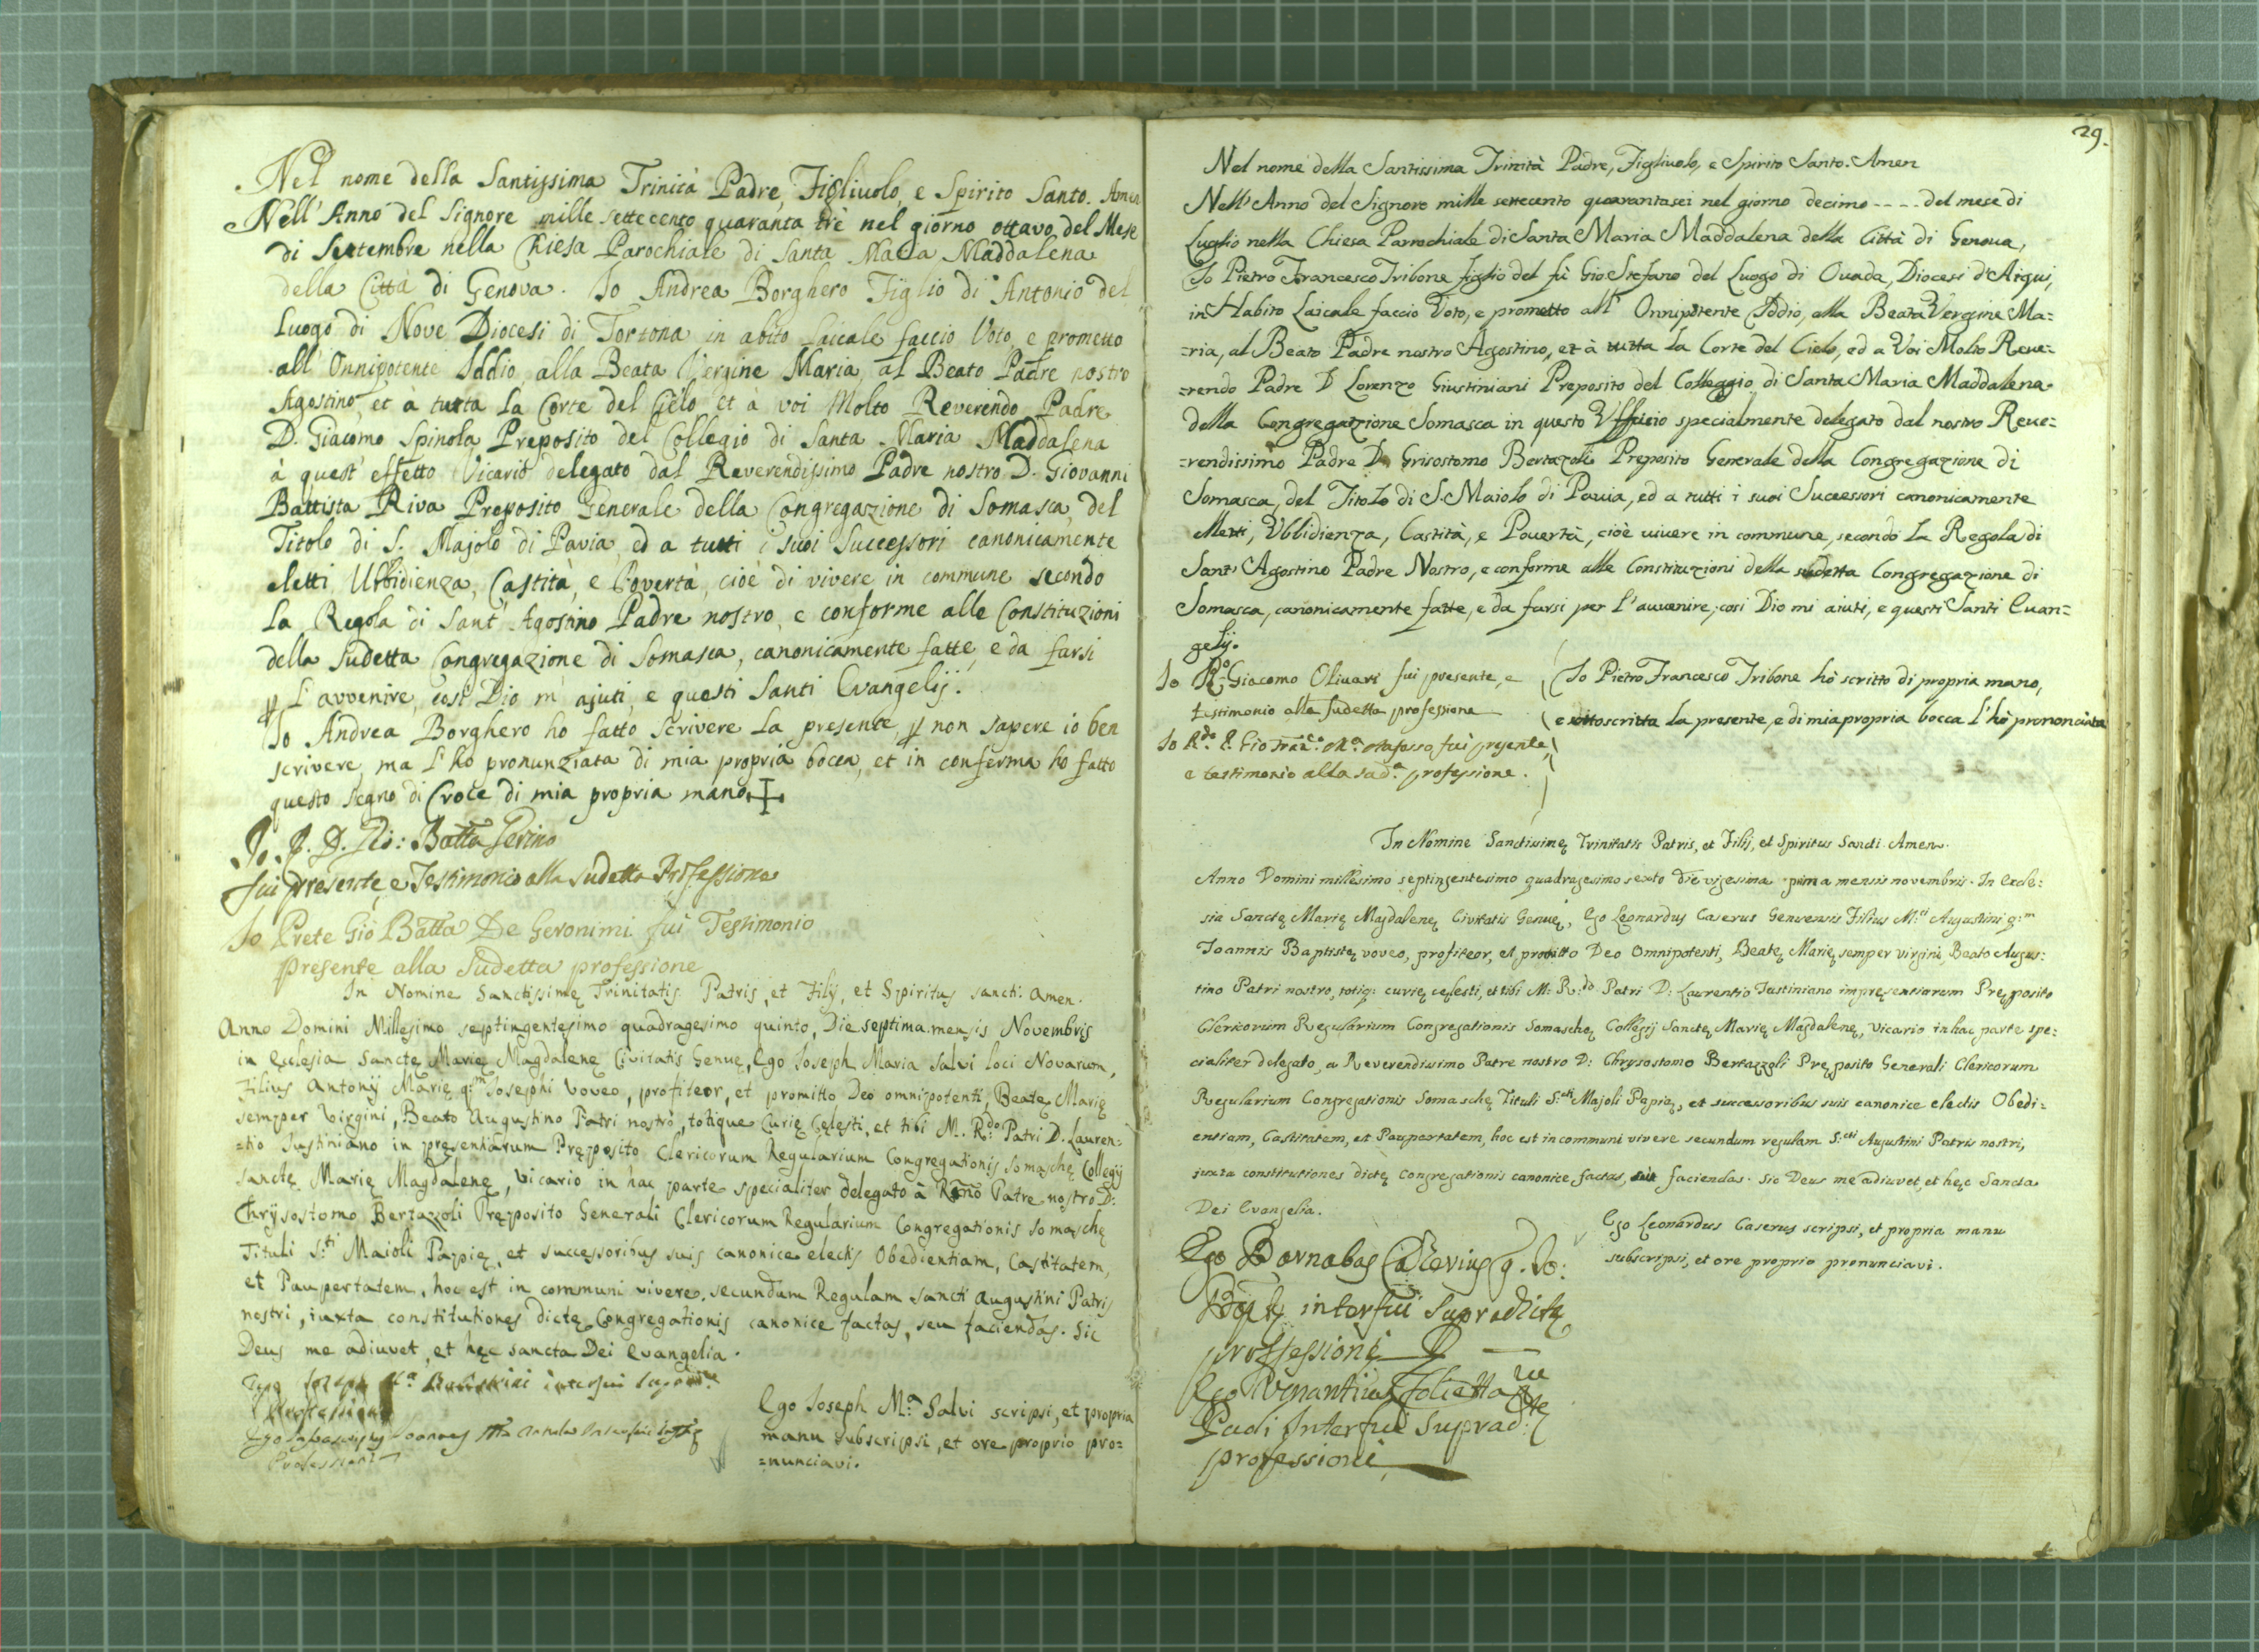 Nel nome della Santissima Trinità Padre, Figliuolo, e Spirito Santo. Amen
Nell' Anno del Signore mille settecento quaranta trè nel giorno ottavo del Mese
di Settembre nella Chiesa Parochiale di Santa Maria Maddalena
della Città di Genova. Io Andrea Borghero Figlio di Antonio del
Luogo di Nove Diocesi di Tortona in abito laicale faccio Voto, e prometto
all' Onnipotente Iddio, alla Beata Vergine Maria, al Beato Padre nostro
Agostino, et à tutta la Corte del Cielo et à voi Molto Reverendo Padre
D. Giacomo Spinola Preposito del Collegio di Santa Maria Maddalena
à quest' effetto Vicario delegato dal Reverendissimo Padre nostro D. Giovanni
Battista Riva Preposito Generale della Congregazione di Somasca, del
Titolo di S. Majolo di Pavia, ed a tutti i suoi Successori canonicamente
eletti Ubbidienza, Castità, e Povertà, cioè di vivere in commune secondo
la Regola di Sant' Agostino Padre nostro, e conforme alle Constituzioni
della Sudetta Congregazione di Somasca, canonicamente fatte, e da farsi
ꝑ l'avvenire, così Dio m' ajuti, e questi Santi Evangelij.
Io Andrea Borghero ho fatto scrivere la presente, ꝑ non sapere io ben
scrivere, ma l' ho pronunziata di mia propria bocca, et in conferma ho fatto
questo segno di Croce di mia propria mano ✝
Io. P. D. Gio: Batta
fui presente, e Testimonio alla sudetta Professione
Io Prete Gio Batta De Geronimi fui Testimonio
presente alla Sudetta professione
In Nomine Sanctissimę Trinitatis Patris, et Filij, et Spiritus Sancti. Amen.
Anno Domini Millesimo septingentesimo quadragesimo quinto, Die septima mensis Novembris
in Ecclesia Sanctę Marię Magdalenę Civitatis Genuę, Ego Joseph Maria Salvi loci Novarum,
Filius Antonij Marię q:m Josephi voveo, profiteor, et promitto Deo omnipotenti, Beatę Marię
semper Virgini, Beato Augustino Patri nostro, totique Curię Cęlesti, et tibi M. R:do Patri D. Lauren=
=tio Justiniano in pręsentiarum Pręposito Clericorum Regularium Congregationis Somaschę Collegij
Sanctę Marię Magdalenę, vicario in hac parte specialiter delegato à Rmo Patre nostro D:
Chrysostomo Bertazzoli Pręposito Generali Clericorum Regularium Congregationis Somaschę
Tituli S:ti Maioli Papię, et successoribus suis canonice electis Obedientiam, Castitatem,
et Paupertatem, hoc est in communi vivere secundum Regulam Sancti Augustini Patris
nostri, iuxta constitutiones dictę Congregationis canonice factas, seu faciendas. Sic
Deus me adiuvet, et hęc sancta Dei Evangelia.
Ego Joseph M.a interfui
Professioni
Ego Joannes
Professioni
Ego Joseph M.a Salvi scripsi, et propria
manu subscripsi, et ore proprio pro=
=nunciavi.
29.
Nel nome della Santissima Trinità Padre, Figliuolo, e Spirito Santo. Amen
Nell' Anno del Signore mille settecento quarantasei nel giorno decimo - - - - del mese di
Luglio nella Chiesa Parrochiale di Santa Maria Maddalena della Città di Genova,
Io Pietro Francesco Tribone figlio del fù Gio Stefano del Luogo di Ovada, Diocesi d'Aiqui,
in Habito Laicale faccio Voto, e prometto all' Onnipotente Iddio, alla Beata Vergine Ma=
=ria, al Beato Padre nostro Agostino, et à tutta la Corte del Cielo, ed a Voi Molto Reve=
=rendo Padre D Lorenzo Giustiniani Preposito del Colleggio di Santa Maria Maddalena
della Congregazione Somasca in questo Ufficio specialmente delegato dal nostro Reve=
=rendissimo Padre D. Grisostomo Bertazoli Preposito Generale della Congregazione di
Somasca, del Titolo di S. Maiolo di Pavia, ed a tutti i suoi Successori canonicamente
eletti, Ubbidienza, Castità, e Povertà, cioè vivere in commune, secondo la Regola di
Sant' Agostino Padre Nostro, e conforme alle Constituzioni della sudetta Congregazione di
Somasca, canonicamente fatte, e da farsi per l'avvenire, così Dio mi aiuti, e questi Santi Evan=
gelij.
Io R.do Giacomo Olivari fui presente, e
testimonio alla sudetta professione
Io R.do P. Gio fui presente,
e testimonio alla sad.a professione.
Io Pietro Francesco Tribone hò scritto di propria mano,
e sottoscritta la presente, e di mia propria bocca l'hò prononciata
In Nomine Sanctissimę Trinitatis Patris, et Filij, et Spiritus Sancti Amen.
Anno Domini millesimo septingentesimo quadragesimo sexto die vigesima prima mensis novembris. In Eccle=
sia Sanctę Marię Magdalenę Civitatis Genuę, Ego Leonardus Caserus Genuensis Filius M:ci Augustini q:m
Joannis Baptistę voveo, profiteor, et promitto Deo Omnipotenti, Beatę Marię semper virgini, Beato Augus=
tino Patri nostro, totiq: curię cęlesti, et tibi M: R:do Patri D: Laurentio Justiniano impręsentiarum Pręposito
Clericorum Regularium Congregationis Somaschę Collegij Sanctę Marię Magdalenę, Vicario in hac parte spe=
cialiter delegato, a Reverendissimo Patre nostro D: Chrysostomo Bertazzoli Pręposito Generali Clericorum
Regularium Congregationis Somaschę Tituli S:cti Majoli Papię, et successoribus suis canonice electis Obedi=
entiam, Castitatem, et Paupertatem, hoc est in communi vivere secundum regulam S:cti Augustini Patris nostri,
juxta constitutiones dictę Congregationis canonice factas, faciendas. Sic Deus me adiuvet, et hęc Sancta
Dei Evangelia.
Ego Barnabas q. Jo:
interfui Supradictę
professioni
Ego Venantius
interfui Suprad:tę
professioni
Ego Leonardus Caserus scripsi, et propria manu
subscripsi, et ore proprio pronunciavi.